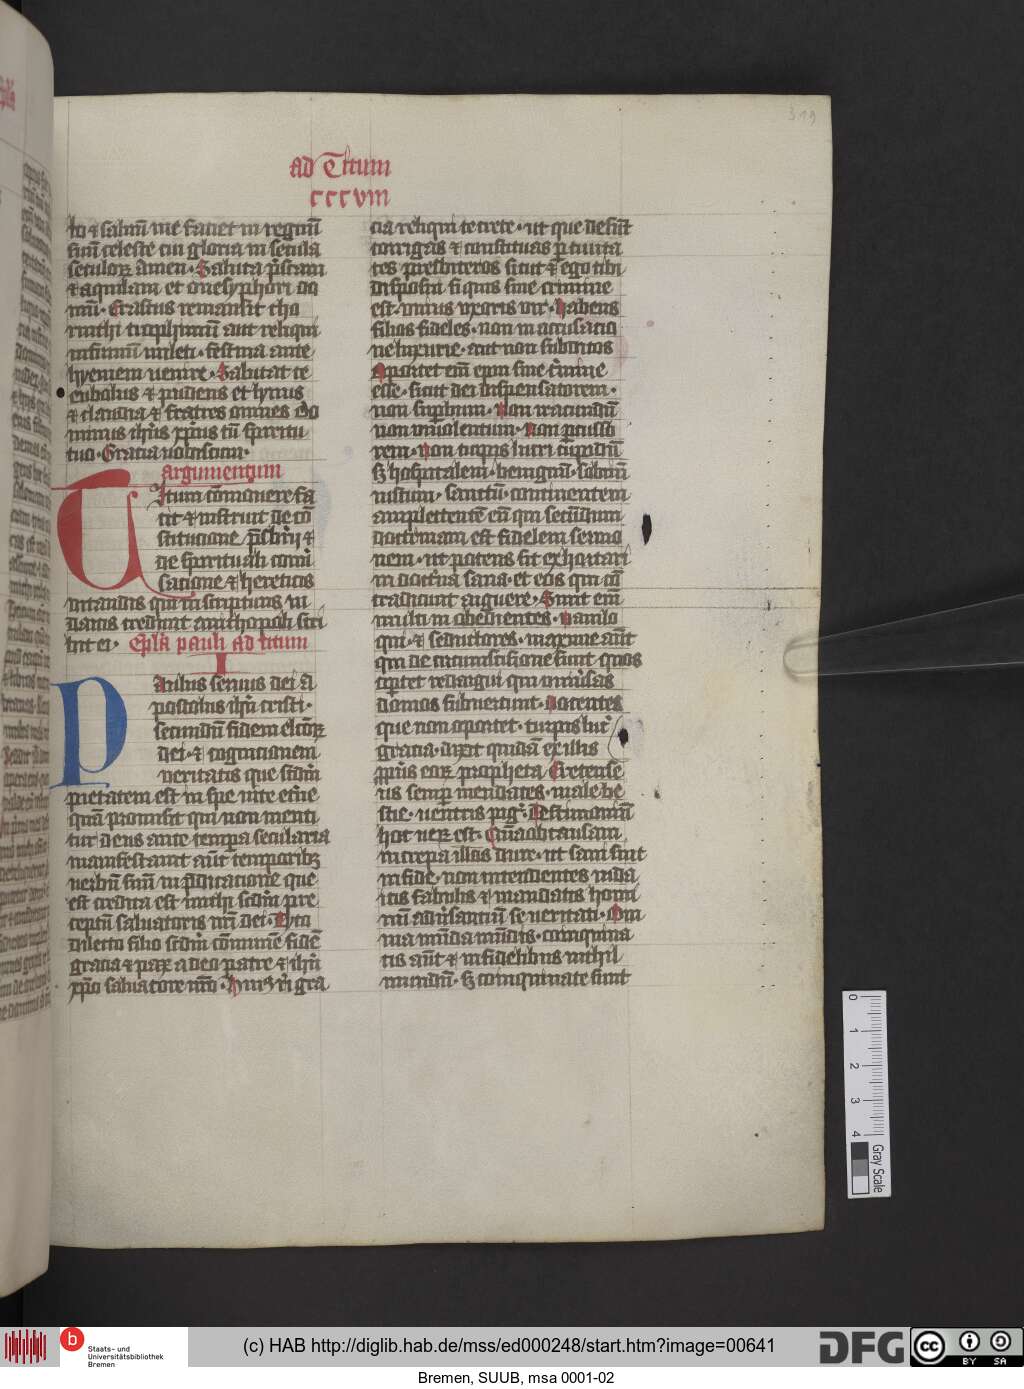 ad Titum
cccvııı
lo ⁊ saluũ me faciet in regnũ
suũ celeste cui gloria in secula
seculoꝝ amen · Saluta pͥscam
⁊ aquilam et onesyphori do
mũ · Erastus remansit cho
rinthi trophimũ aut reliqui
infirmũ mileti · festina ante
hyemem uenire · Salutat te
eubolus ⁊ pudens et lynus
⁊ claudia ⁊ fratres omnes Do
minus ihũs xpũs tũ spiritu
tuo · Gratia uobiscum ·
argumentum
Titum cõmonere fa
cit ⁊ instruit de cõ
stitucione p̃sbitri ⁊
de spirituali conũ
sacione ⁊ hereticis
uitandis qui in scripturis iu
daicis credunt a nichopoli scri
bit ei · Epl̃a pauli ad titum
I
Paulus seruus dei a
postolus ihũ cristi ·
secundũ fidem electõꝝ
dei · ⁊ cognicionem
ueritatis que scdm̃
pietatem est in spe uite et̃ne
quã promisit qui non menti
tur deus ante tempora secularia
manifestauit aũt temporibꝫ
uerbũ suũ in p̃dicacione que
est credita est michi scdm̃ pre
ceptũ saluatoris nr̃i dei · Tito
dilecto filio scdm̃ cõmunẽ fidẽ
gracia ⁊ pax a deo patre ⁊ ihũ
xp̃o saluatore nr̃o · Huiꝰ rei gra
cia reliqui te crete · ut que desũt
corrigas ⁊ constituas p̱ ciuita
tes presbiteros sicut ⁊ ego tibi
disposui si quis sine crimine
est · vnius vxoris vir · habens
filios fideles · non in accusacio
ne luxurie · aut non subditos
Oportet eĩ ep̃m sine cͥmine
esse · sicut dei dispensatorem ·
non suꝑbum · Non iracundũ
non vinolentum · Non ꝑcusso
rem · Non turpis lucri cupidũ
sꝫ hospitalem · benignũ · sobriũ
iustum · sanctũ · continentem
amplectentẽ eũ qui secũdum
doctrinam est fidelem sermo
nem · ut potens sit exhortari
in doctͥna sana · et eos qui cõ
tradicunt arguere · Sunt eĩ
multi inobedientes · vanilo
qui · ⁊ seductores · maxime aũt
qui de circumcisione sunt quos
oportet redargui qui vniũsas
domos subuertunt · Docentes
que non oportet · turpis lucͥ
gracia · dixit quidã ex illis
ꝓprius eoꝝ propheta Cretense
us semꝑ mendaces · male be
stie · uentris pigͥ · Testimoniũ
hoc ueꝝ est · Quã ob causam
increpa illos dure · ut sani sint
in fide · non intendentes iuda
icis fabulis ⁊ mandatis homi
nũ adũsantiũ se ueritati · Om
nia mũda mũdis · coinquina
tis aũt ⁊ infidelibus nichil
mundũ · sꝫ coinquinate sunt
319
0 1 2 3 4
Gray Scale
b Staats- und
Universitätsbibliothek
Bremen
(c) HAB http://diglib.hab.de/mss/ed000248/start.htm?image=00641
DFG
cc BY SA
Bremen, SUUB, msa 0001-02